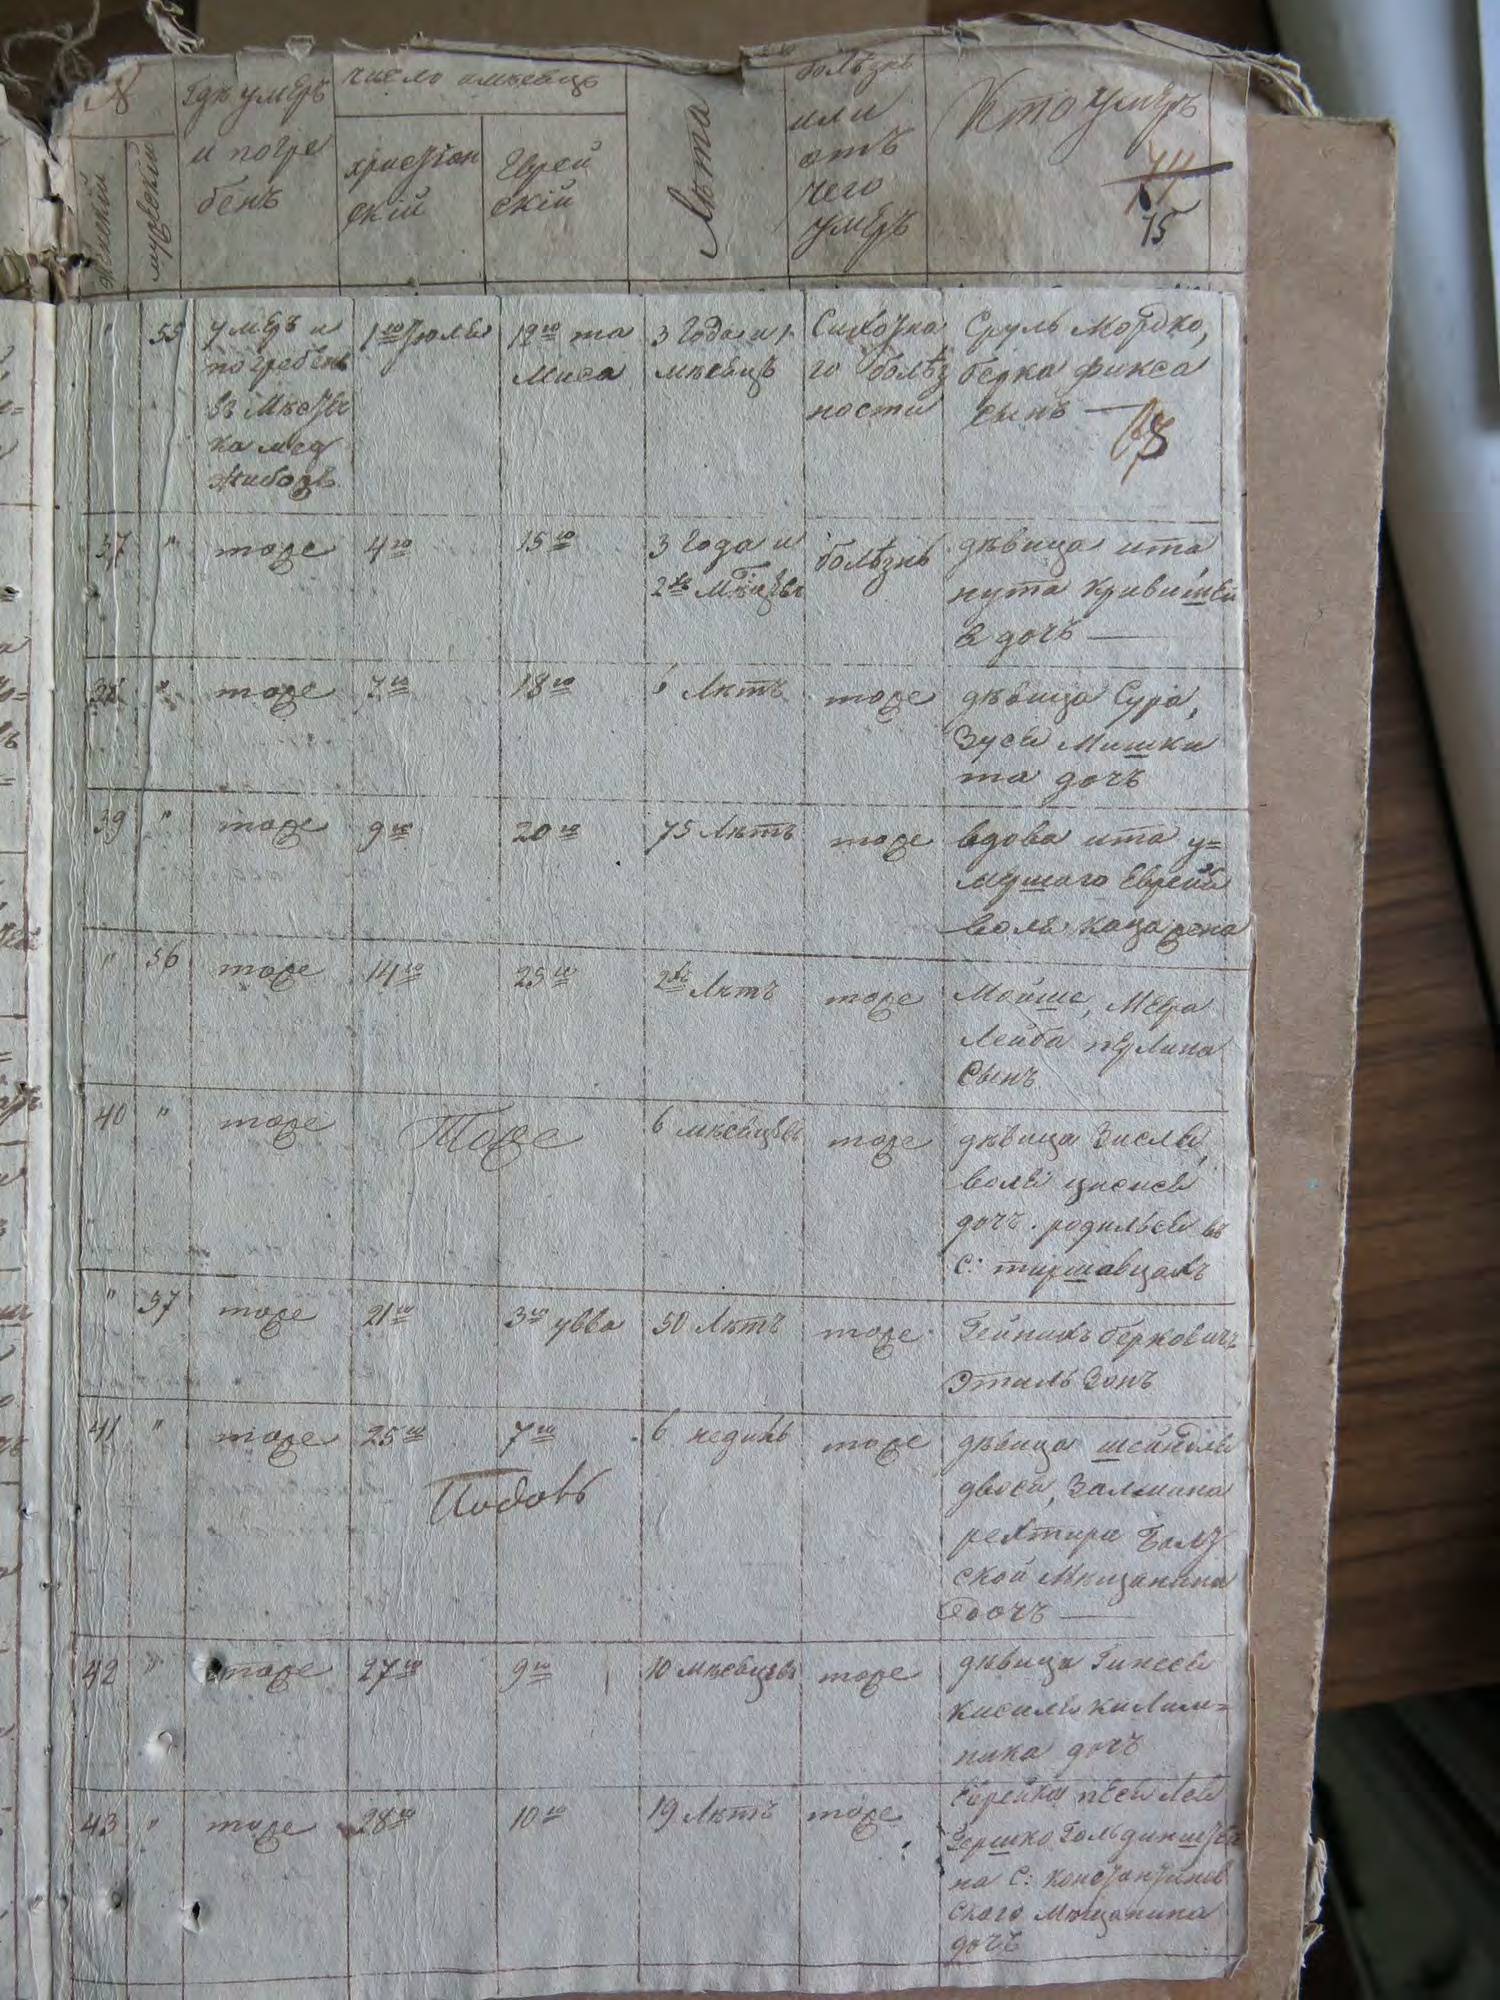 №
женскій
мужескій
Гдѣ умеръ
и погре
бенъ
число и мѣсяцъ
христіан
скій
Еврей
скій
Лѣта
болѣзнь
или
отъ
чего
умеръ
Кто умеръ
15
" 35 умеръ и
погребенъ
въ Мѣстеч
ка мед
жибозѣ
1го Іюля
12го та
Миса
3 Года и 1
мѣсяцъ
Сихотна
го болѣз
ности
Сруль Мордко,
берка фикса
сынъ —
37 " тоже 4го 15го
3 Года и
2ва Мѣсяцы
болѣзнь
дѣвица ита
нута Кривишей
а дочь —
38 " тоже 7го 18го 6 Лѣтъ тоже
дѣвица Сура,
Зуся Мишки
та дочь
39 " тоже 9го 20го 75 Лѣтъ тоже
вдова ита у=
мершаго Еврея
воля кацарена
" 36 тоже 14го 25го 2ва Лѣтъ тоже
Мойше, Меера
Лейба перлина
Сынъ
40 " тоже Тоже 6 мѣсяцовъ тоже
дѣвица Зисля
воля циси
дочь. родилься въ
С: тиршовцахъ
" 37 тоже 21го 3го увва 50 Лѣтъ тоже
Гейнихъ берковичъ
Этиль Зонъ
41 " тоже 25го 7го 6 недиль тоже
дѣвица шейндля
двося, Залмана
рехтира Балт
ской Мѣщанина
дочь —
42 " тоже 27го 9го 10 мѣсяцовъ тоже
дѣвица Гинеся
кисиля килим=
ника дочь
43 " тоже 28го 10го 19 Лѣтъ тоже
Еврейка песя Лея
Гершко Гольдинштей
на С: константинов
ского Мѣщанина
дочь